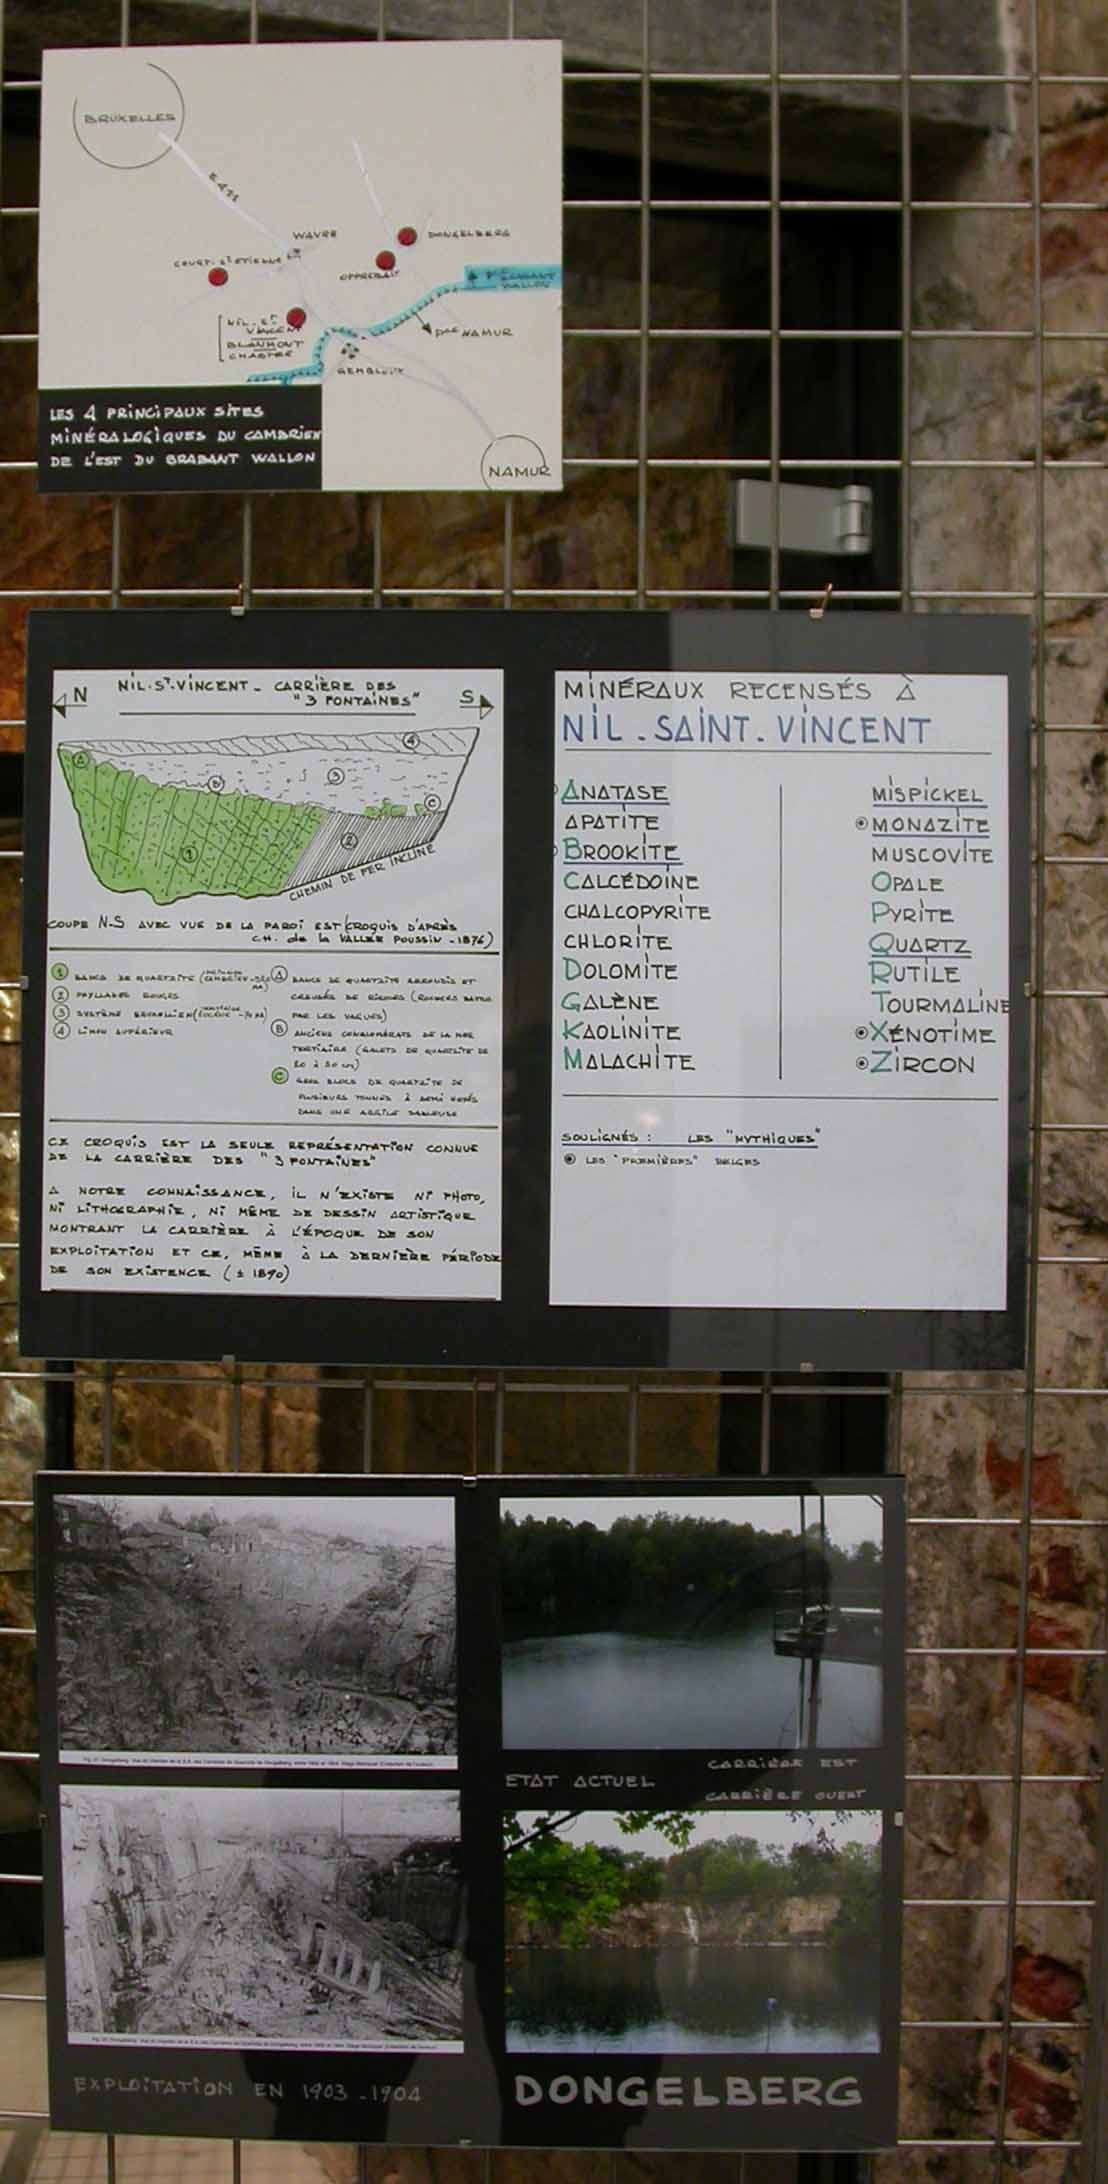 BRUXELLES
E411
WAVRE
DONGELBERG
COURT-ST ETIENNE
OPPREBAIS
PCE BRABANT
WALLON
NIL-ST
VINCENT
BLANMONT
CHASTRE
PCE NAMUR
GEMBLOUX
NAMUR
LES 4 PRINCIPAUX SITES
MINÉRALOGIQUES DU CAMBRIEN
DE L'EST DU BRABANT WALLON
N
NIL-ST-VINCENT - CARRIÈRE DES
"3 FONTAINES"
S
A
4
B
3
C
1
2
CHEMIN DE FER INCLINÉ
COUPE N-S AVEC VUE DE LA PAROI EST (CROQUIS D'APRÈS
CH. de la VALLÉE POUSSIN - 1876)
1 BANCS DE QUARTZITE
2 PHYLLADES ROUGES
3 SYSTÈME BRUXELLIEN
4 LIMON SUPÉRIEUR
A BANCS DE QUARTZITE ARRONDIS ET
CREUSÉS DE RIGOLES (ROCHERS BATTUS
PAR LES VAGUES)
B ANCIENS CONGLOMÉRATS DE LA MER
TERTIAIRE (GALETS DE QUARTZITE DE
20 À 30 cm)
C GROS BLOCS DE QUARTZITE DE
PLUSIEURS TONNES À DEMI NOYÉS
DANS UNE ARGILE SABLEUSE
CE CROQUIS EST LA SEULE REPRÉSENTATION CONNUE
DE LA CARRIÈRE DES "3 FONTAINES"
A NOTRE CONNAISSANCE, IL N'EXISTE NI PHOTO,
NI LITHOGRAPHIE, NI MÊME DE DESSIN ARTISTIQUE
MONTRANT LA CARRIÈRE À L'ÉPOQUE DE SON
EXPLOITATION ET CE, MÊME À LA DERNIÈRE PÉRIODE
DE SON EXISTENCE (± 1890)
MINÉRAUX RECENSÉS À
NIL-SAINT-VINCENT
ANATASE
APATITE
BROOKITE
CALCÉDOINE
CHALCOPYRITE
CHLORITE
DOLOMITE
GALÈNE
KAOLINITE
MALACHITE
MISPICKEL
MONAZITE
MUSCOVITE
OPALE
PYRITE
QUARTZ
RUTILE
TOURMALINE
XÉNOTIME
ZIRCON
SOULIGNÉS : LES "MYTHIQUES"
LES "PREMIÈRES" BELGES
ETAT ACTUEL
CARRIÈRE EST
CARRIÈRE OUEST
EXPLOITATION EN 1903-1904
DONGELBERG